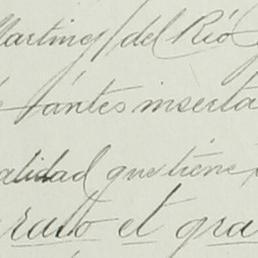 Martinez del Río
antes inserta
alidad que tiene
rato et gra